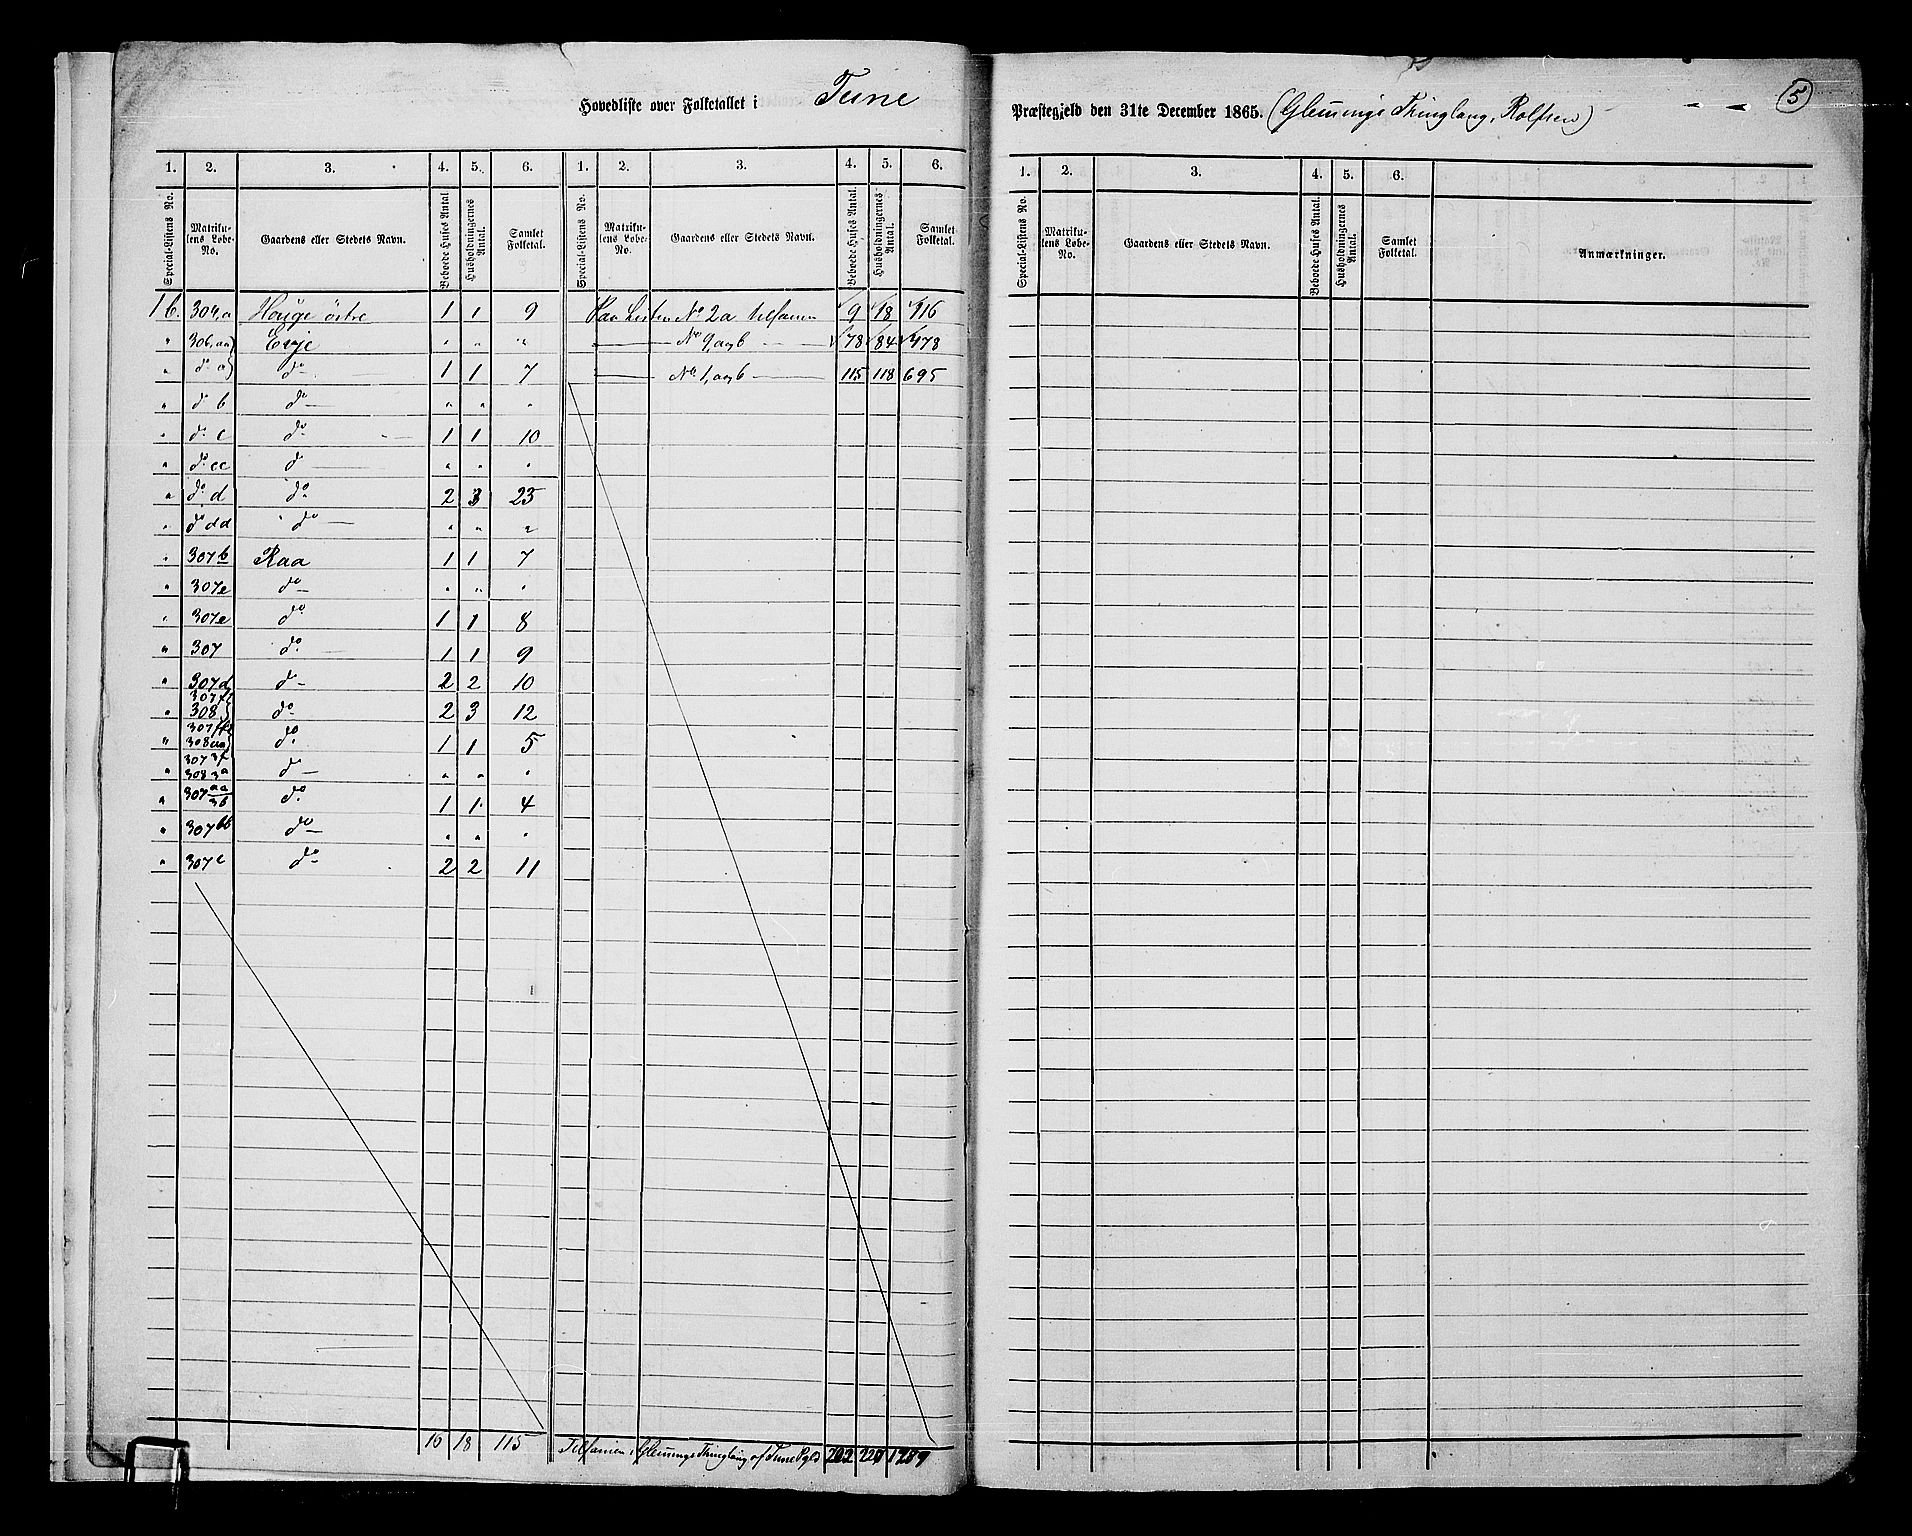 Hovedliste over Folketallet i Tune Præstegjeld den 31te December 1865. (Glemminge Thinglaug, Rolfsen)
5
1. 2. 3. 4. 5. 6. 1. 2. 3. 4. 5. 6. 1. 2. 3. 4. 5. 6.
Special-Listens No. Matrikulens Løbe-No. Gaardens eller Stedets Navn. Beboede Huses Antal Husholdningernes Antal. Samlet Folketal.
Special-Listens No. Matrikulens Løbe-No. Gaardens eller Stedets Navn. Beboede Huses Antal. Husholdningernes Antal. Samlet Folketal.
Special-Listens No. Matrikulens Løbe-No. Gaardens eller Stedets Navn. Beboede Huses Antal. Husholdningernes Antal. Samlet Folketal. Anmærkninger.
1 b. 304,a Houge östre 1 1 9
" 306,aa Evje " " "
" do a do 1 1 7
" do b do " " "
" do c do 1 1 10
" do cc do " " "
" do d do 2 3 23
" do dd do " " "
" 307b Raa 1 1 7
" 307e do " " "
" 307e do 1 1 8
" 307 do 1 1 9
" 307d do 2 2 10
307f
" 308 do 2 3 12
307ff
" 308aa do 1 1 5
307 3f
" 308 3a do " " "
" 307 aa 3b do 1 1 4
" 307bb do " " "
" 307c do 2 2 11
16 18 115
Paa Listen No 2a tilsamen 9 18 116
— No 9, a og b — 78 84 478
— No 1, a og b — 115 118 695
Tilsamen i Glemminge Thinglaug af Tune Pgld 202 220 1289